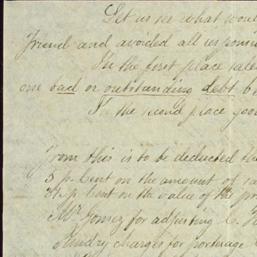 Let us see what woul
friend and avoided all responsi
In the first place sale
one bad or outstanding debt 6
In the second place goo
From this is to be deducted the
5 p. Cent on the amount of sa
2½ p. Cent on the value of the pr
Mr. Gomez for adjusting
Sundry charges for porterage